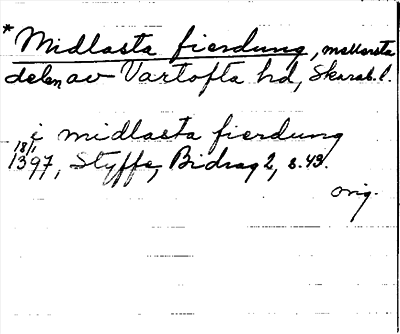 *Midlasta fierdung, mellersta
delen av Vartofta hd, Skarab. l.
i midlasta fierdung
18/1
1397, Styffe, Bidrag 2, s. 43.
orig.